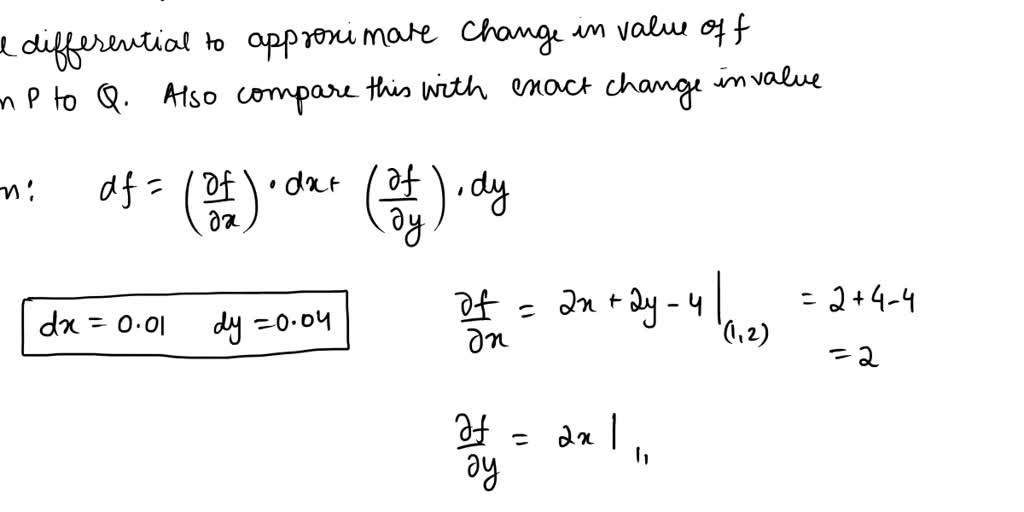 differential to approximate change in value of f
P to Q. Also compare this with exact change in value
df = (∂f/∂x) · dx + (∂f/∂y) · dy
dx = 0.01 dy = 0.04
∂f/∂x = 2x + 2y - 4 |(1,2) = 2 + 4 - 4
= 2
∂f/∂y = 2x | 1,